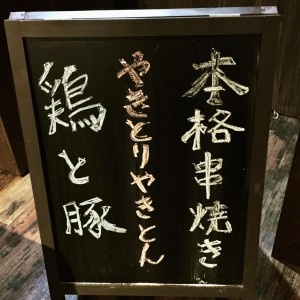 本格串焼き
やきとりやきとん
鶏と豚